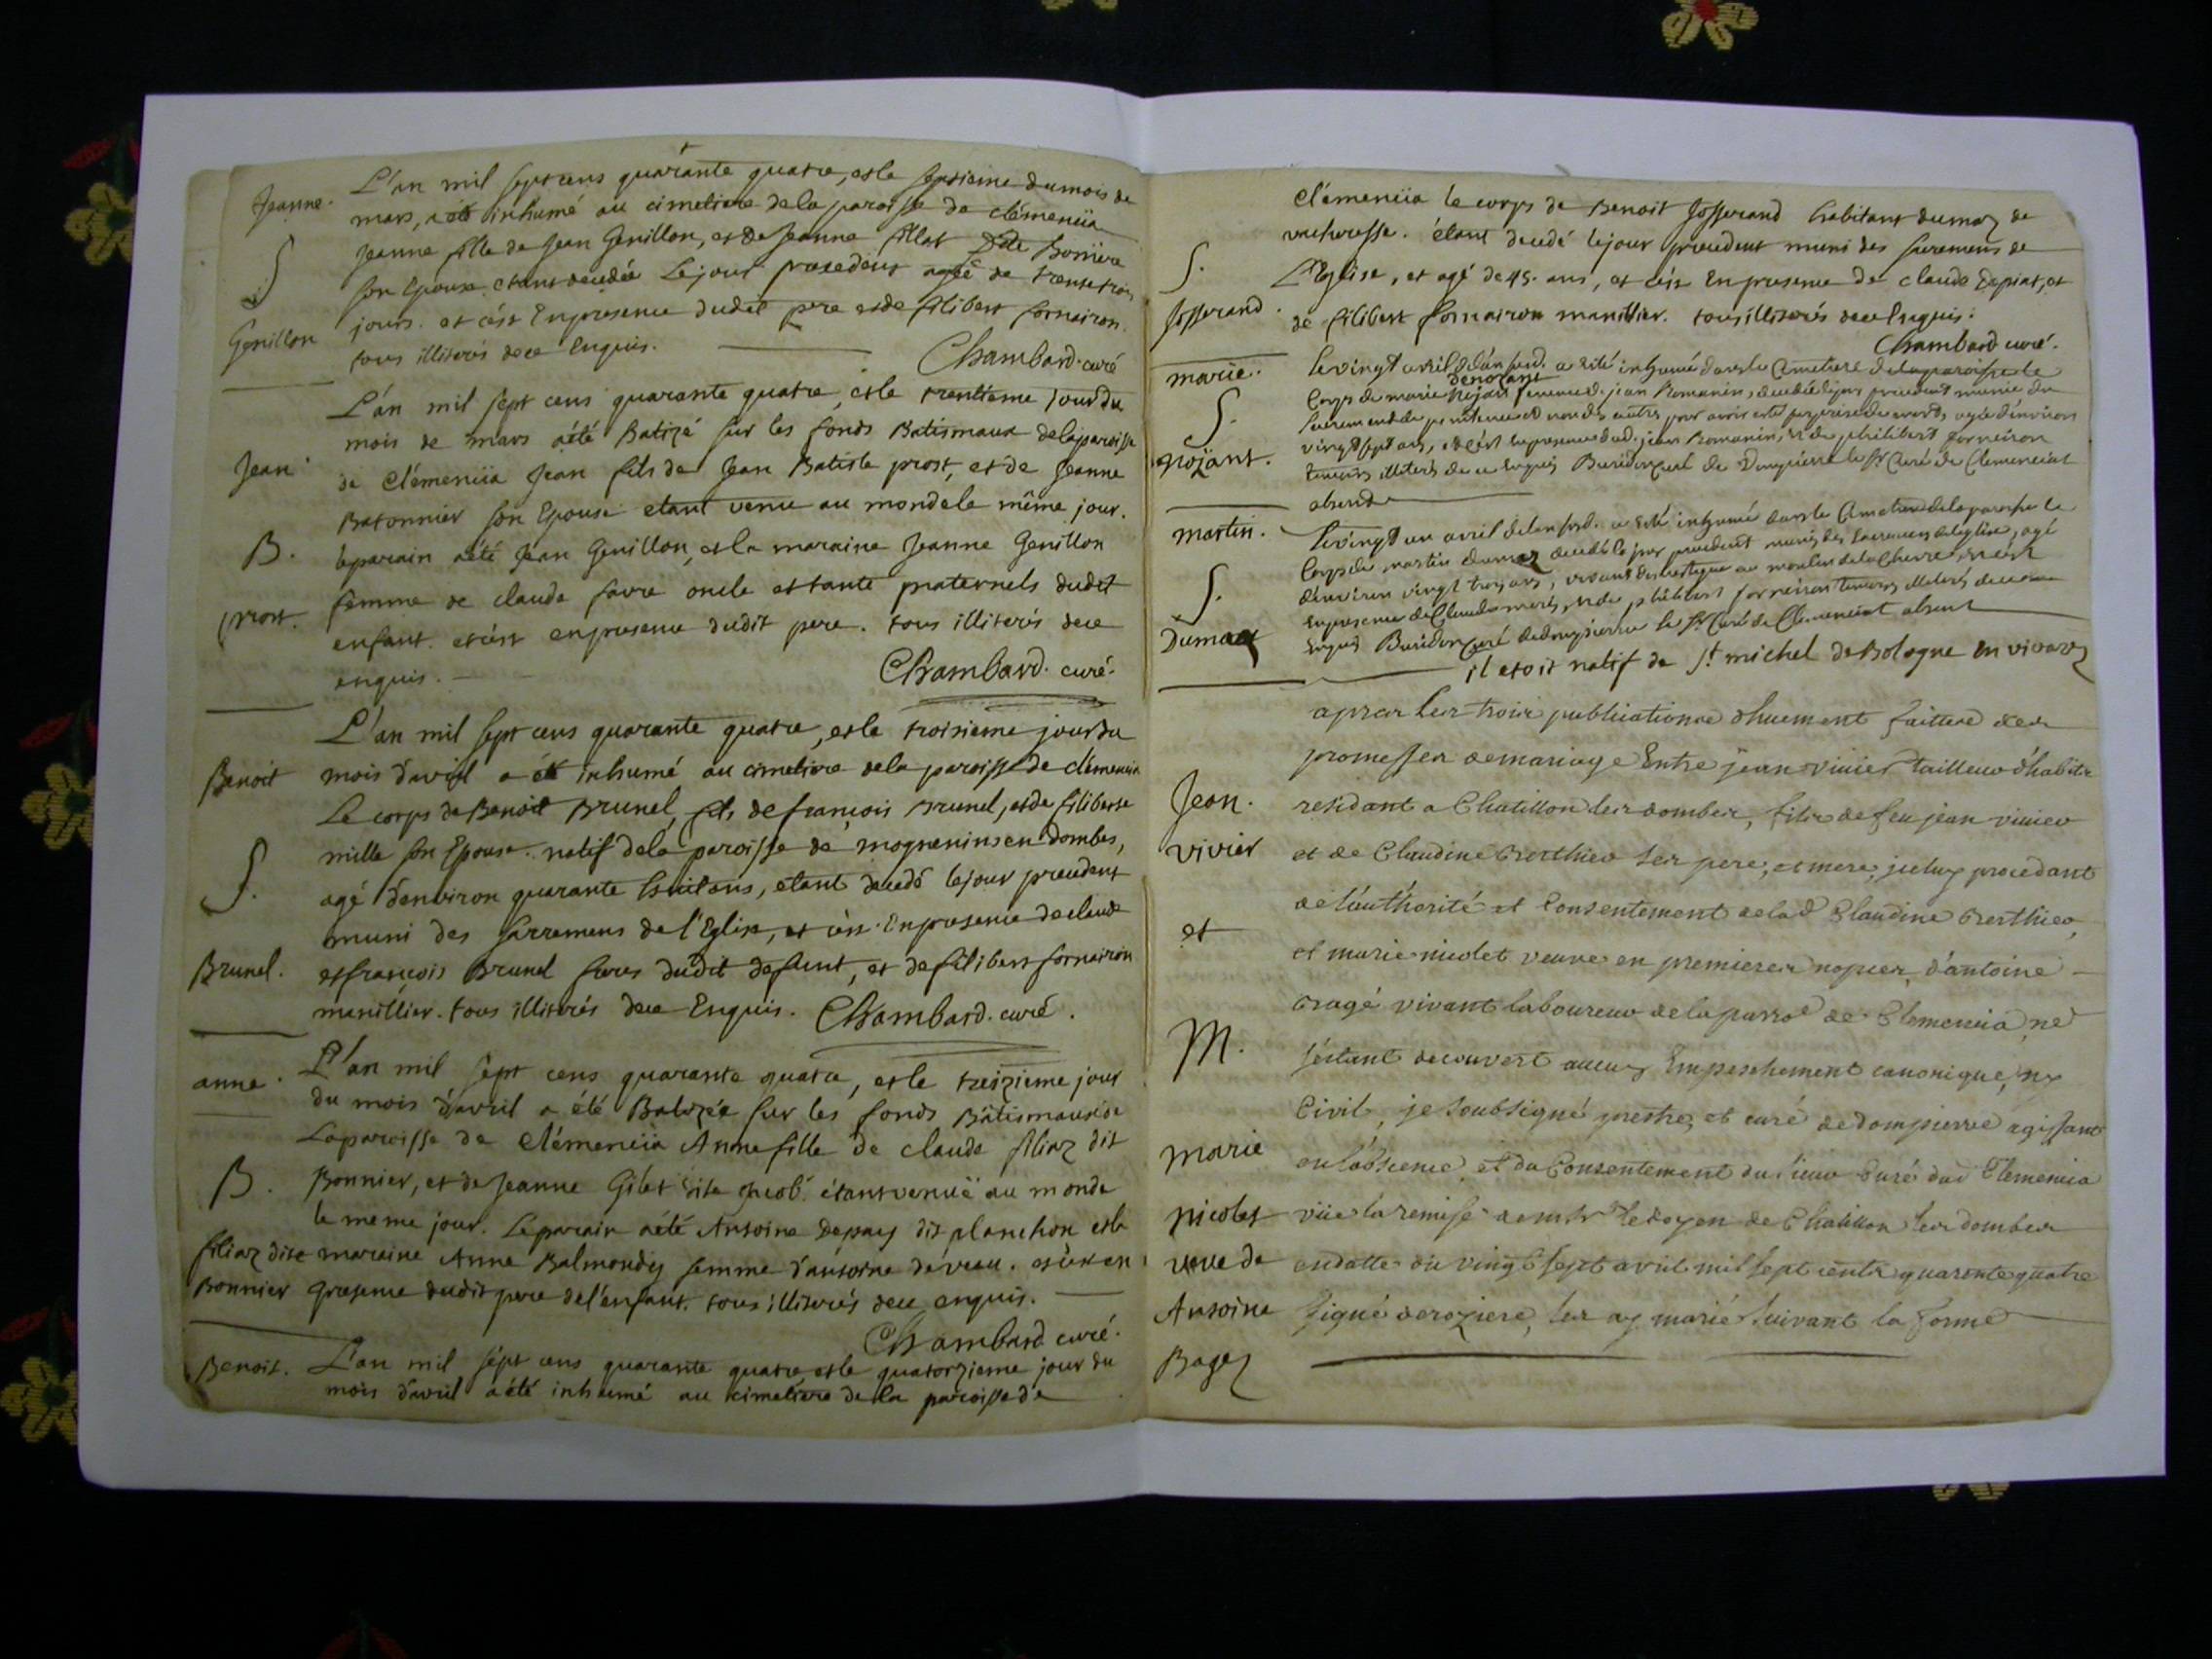 Jeanne. L'an mil sept cens quarante quatre, et le septieme du mois de
mars, a été inhumé au cimetiere de la paroisse de clémenciia
S Jeanne fille de Jean Genillon, et de Jeanne fillat dite Bonniere
son Epouse etant decedée Le jour precedent agée de trente trois
Genillon jours. et c'est En presence dudit pere et de filibert fornairon.
tous illiterés de ce Enquis. Chambard. curé
L'an mil sept cens quarante quatre, et le trentieme jour du
mois de mars a été Batizé sur les fonds Batismaux de la paroisse
Jean de Clémenciia Jean fils de Jean Batiste prost, et de Jeanne
Batonnier son Epouse etant venu au monde le même jour.
B. le parain a été Jean Genillon, et la maraine Jeanne Genillon
femme de claude favre oncle et tante paternels dudit
prost. enfant. et c'est en presence dudit pere. tous illiterés de ce
enquis. Chambard. curé.
L'an mil sept cens quarante quatre, et le troisieme jour du
Benoit mois d'avril a été inhumé au cimetiere de la paroisse de clémenciia
Le corps de Benoit Brunel, fils de francois Brunel, et de filiberte
mille son Epouse. natif de la paroisse de mogneneins en Dombes,
S. agé d'environ quarante huit ans, etant decedé le jour precedent
muni des sacremens de l'Eglise, et c'est En presence de claude
Brunel. et francois Brunel freres dudit defunt, et de filibert fornairon
manillier. tous illiterés de ce Enquis. Chambard. curé.
anne. L'an mil sept cens quarante quatre, et le treizieme jour
du mois d'avril a été Batizée sur les fonds Batismaux de
La paroisse de clémenciia Anne fille de claude filiaz dit
B. Bonnier, et de Jeanne Gilet dite étant venuë au monde
le meme jour. Le parain a été Antoine Depay dit planchon et la
filiaz dite maraine Anne Balmondy femme d'antoine et c'est en
Bonnier presence dudit pere de l'enfant. tous illiterés de ce enquis.
Chambard curé.
Benoit. L'an mil sept cens quarante quatre et le quatorzieme jour du
mois d'avril a été inhumé au cimetiere de la paroisse de
Clémenciia le corps de Benoit Josserand habitant du maz de
vacheresse. étant decedé le jour precedent muni des sacremens de
S. L'Eglise, et agé de 45. ans, et c'est En presence de claude et
Josserand. de filibert fornairon manillier. tous illiterés de ce Enquis.
Chambard curé.
marie. le vingt avril de l'an susd. a esté inhumé dans le Cimetiere de la paroisse le
denojant
Corps de marie femme d. jean Romanin, decedée le jour precedent munie du
S. sacrement de penitence et non des autres pour avoir esté de mort, agée d'environ
vingt sept ans, et c'est en presence dud. jean Romanin, et de philibert forneiron
nojant. temoins illiterés de ce enquis Buridon curé de Dompierre le Sr Curé de Clemenciat
absent
martin. le vingt un avril de l'an susd. a esté inhumé dans le Cimetiere de la paroisse le
Corps de martin dumaz decedé le jour precedent muni des sacremens de l'eglise, agé
S. d'environ vingt trois ans, vivant domestique au moulin de la Chevre et c'est
en presence de Claude et de philibert forneiron temoins illiterés de ce
Dumaz enquis Buridon Curé de dompierre le Sr Curé de Clemenciat absent
il etoit natif de St michel de Bologne en vivarz
apres les trois publications dhuement faittes des
promesses de mariage Entre jean vivier tailleur d'habits
Jean. residant a Chatillon les dombes, fils de feu jean vivier
vivier et de Claudine Berthier ses pere, et mere, icelluy procedant
de l'authorité et Consentement de lad Claudine Berthier,
et et marie nicolet veuve en premieres nopces d'antoine
Bagé vivant laboureur de la parroe de Clemencia, ne
M. s'estant decouvert aucun Empeschement canonique, ny
Civil, je soubsigné prestre, et curé de dompierre agissant
marie en l'absence, et du Consentement du sieur Curé dud Clemencia
nicolet vüe la remise de mr le doyen de Chatillon les dombes
veuve de en datte du vingt sept avril mil sept cents quarante quatre
Antoine signé deroziere, les ay marié suivant la forme
Bagez